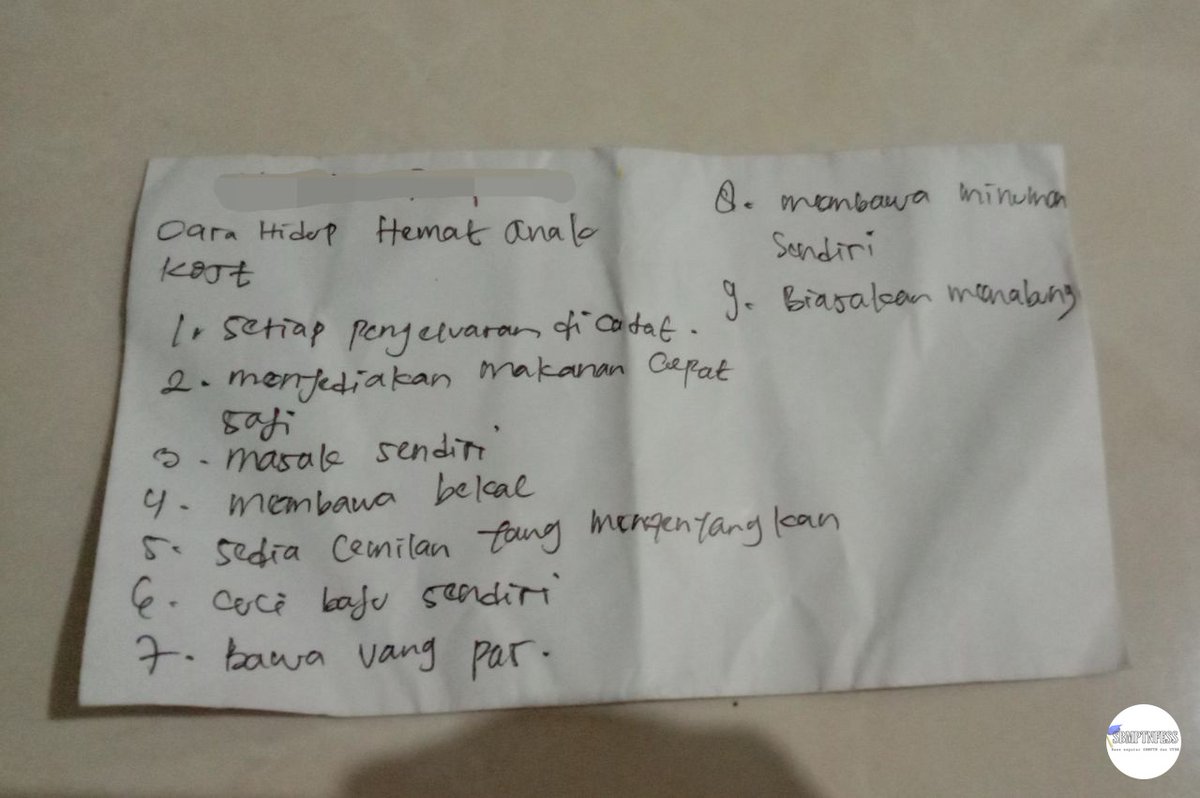 Cara Hidup Hemat anak
Kost
1. Setiap pengeluaran dicatat.
2. menyediakan makanan cepat
saji
3. masak sendiri
4. membawa bekal
5. sedia cemilan yang mengenyangkan
6. cuci baju sendiri
7. bawa uang pas.
8. membawa minuman
sendiri
9. Biasakan menabung
SBMPTNFESS